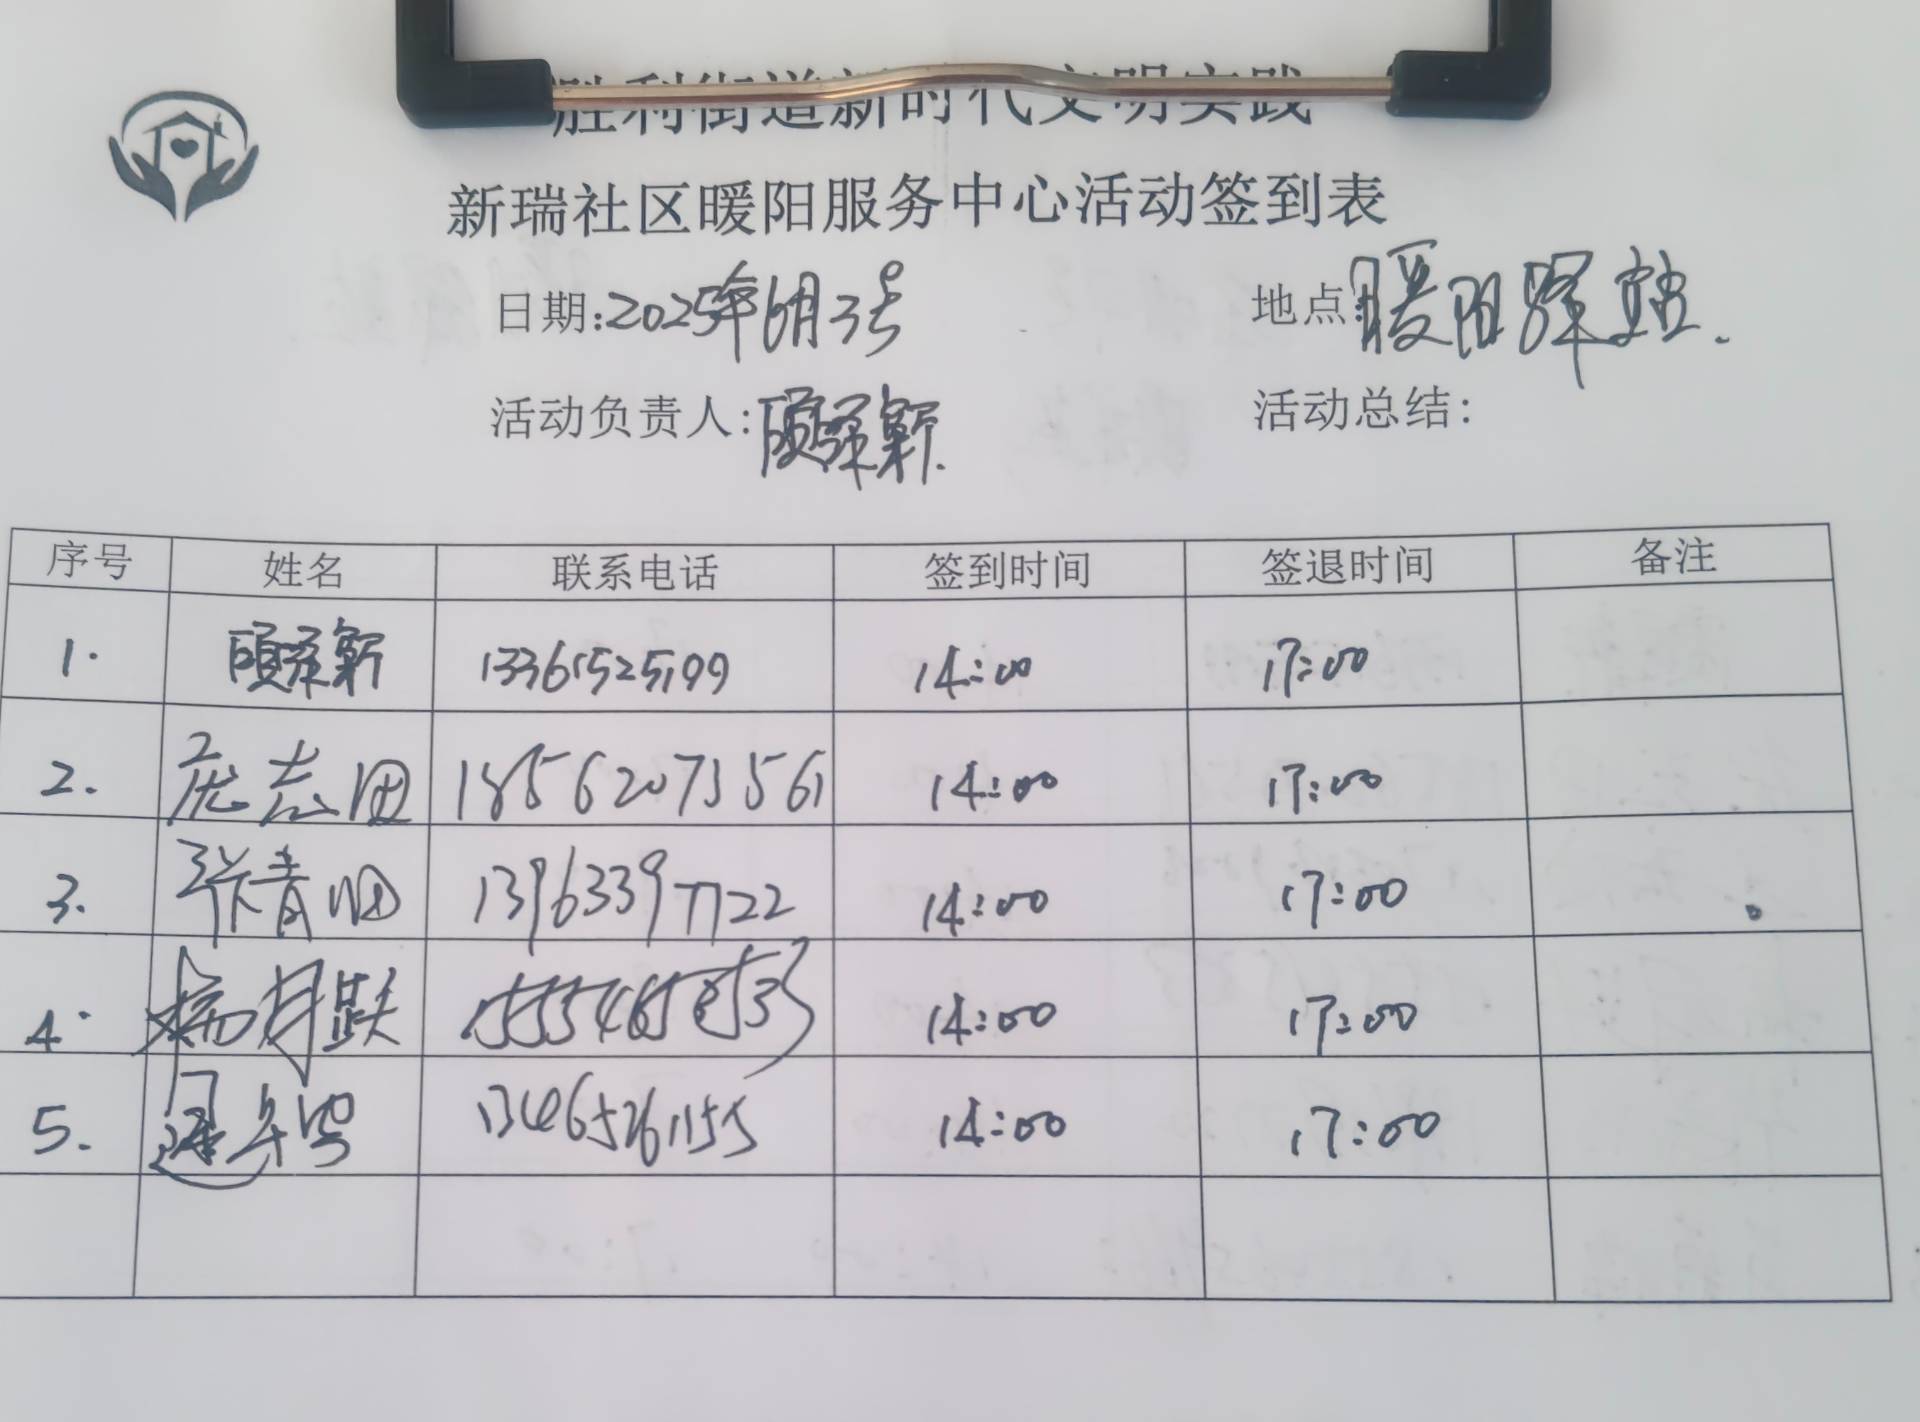 胜利街道新时代文明实践
新瑞社区暖阳服务中心活动签到表
日期:2025年6月3号 地点:暖阳驿站.
活动负责人:顾泽新. 活动总结:
序号 姓名 联系电话 签到时间 签退时间 备注
1. 顾泽新 13361525199 14:00 17:00
2. 庞志田 14:00 17:00
3. 张青 13963397722 14:00 17:00
4. 杨月 14:00 17:00
5. 13465261155 14:00 17:00